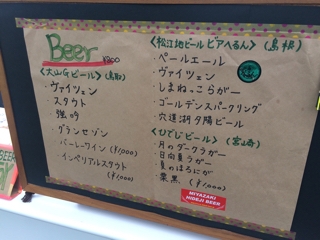 Beer
¥800
〈大山Gビール〉(鳥取)
・ヴァイツェン
・スタウト
・強吟
・グランセゾン
・バーレーワイン(¥1,000)
・インペリアルスタウト
(¥1,000)
〈松江地ビール ビアへるん〉(島根)
・ペールエール
・ヴァイツェン
・しまねっこらがー
・ゴールデンスパークリング
・宍道湖夕陽ビール
〈ひでじビール〉(宮崎)
・月のダークラガー
・日向夏ラガー
・夏のはるにが
・栗黒(¥1,000)
MIYAZAKI
HIDEJI BEER